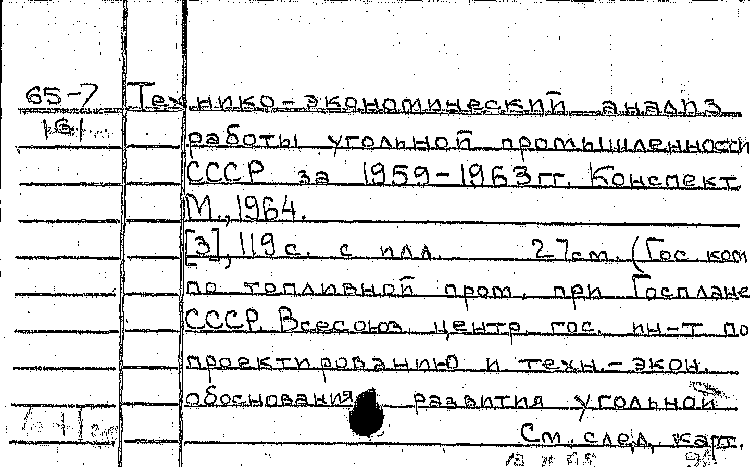 65-7 Технико-экономический анализ
161
работы угольной промышленности
СССР за 1959-1963гг. Конспект
М., 1964.
[3], 119 с. с илл. 27см. (Гос ком
по топливной пром. при Госплане
СССР. Всесоюз. центр. гос. ин-т по
проектированию и техн.-экон.
обоснования развития угольной
См. след. карт.